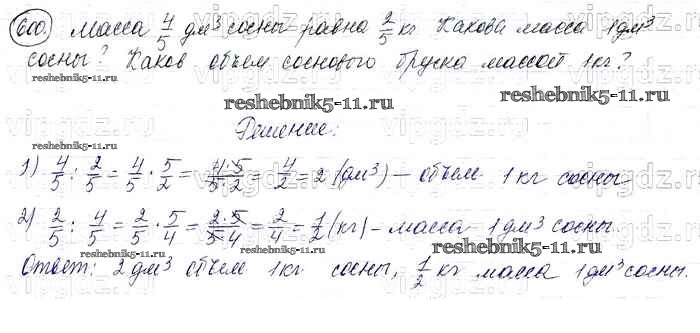 600. Масса 4/5 дм³ сосны равна 2/5 кг. Какова масса 1 дм³
сосны? Каков объем соснового бруска массой 1 кг?
reshebnik5-11.ru
reshebnik5-11.ru
Решение:
1) 4/5 : 2/5 = 4/5 · 5/2 = 4·5/5·2 = 4/2 = 2 (дм³) – объем 1 кг сосны
2) 2/5 : 4/5 = 2/5 · 5/4 = 2·5/5·4 = 2/4 = 1/2 (кг) – масса 1 дм³ сосны.
reshebnik5-11.ru
Ответ: 2 дм³ объем 1 кг сосны, 1/2 кг масса 1 дм³ сосны.
reshebnik5-11.ru